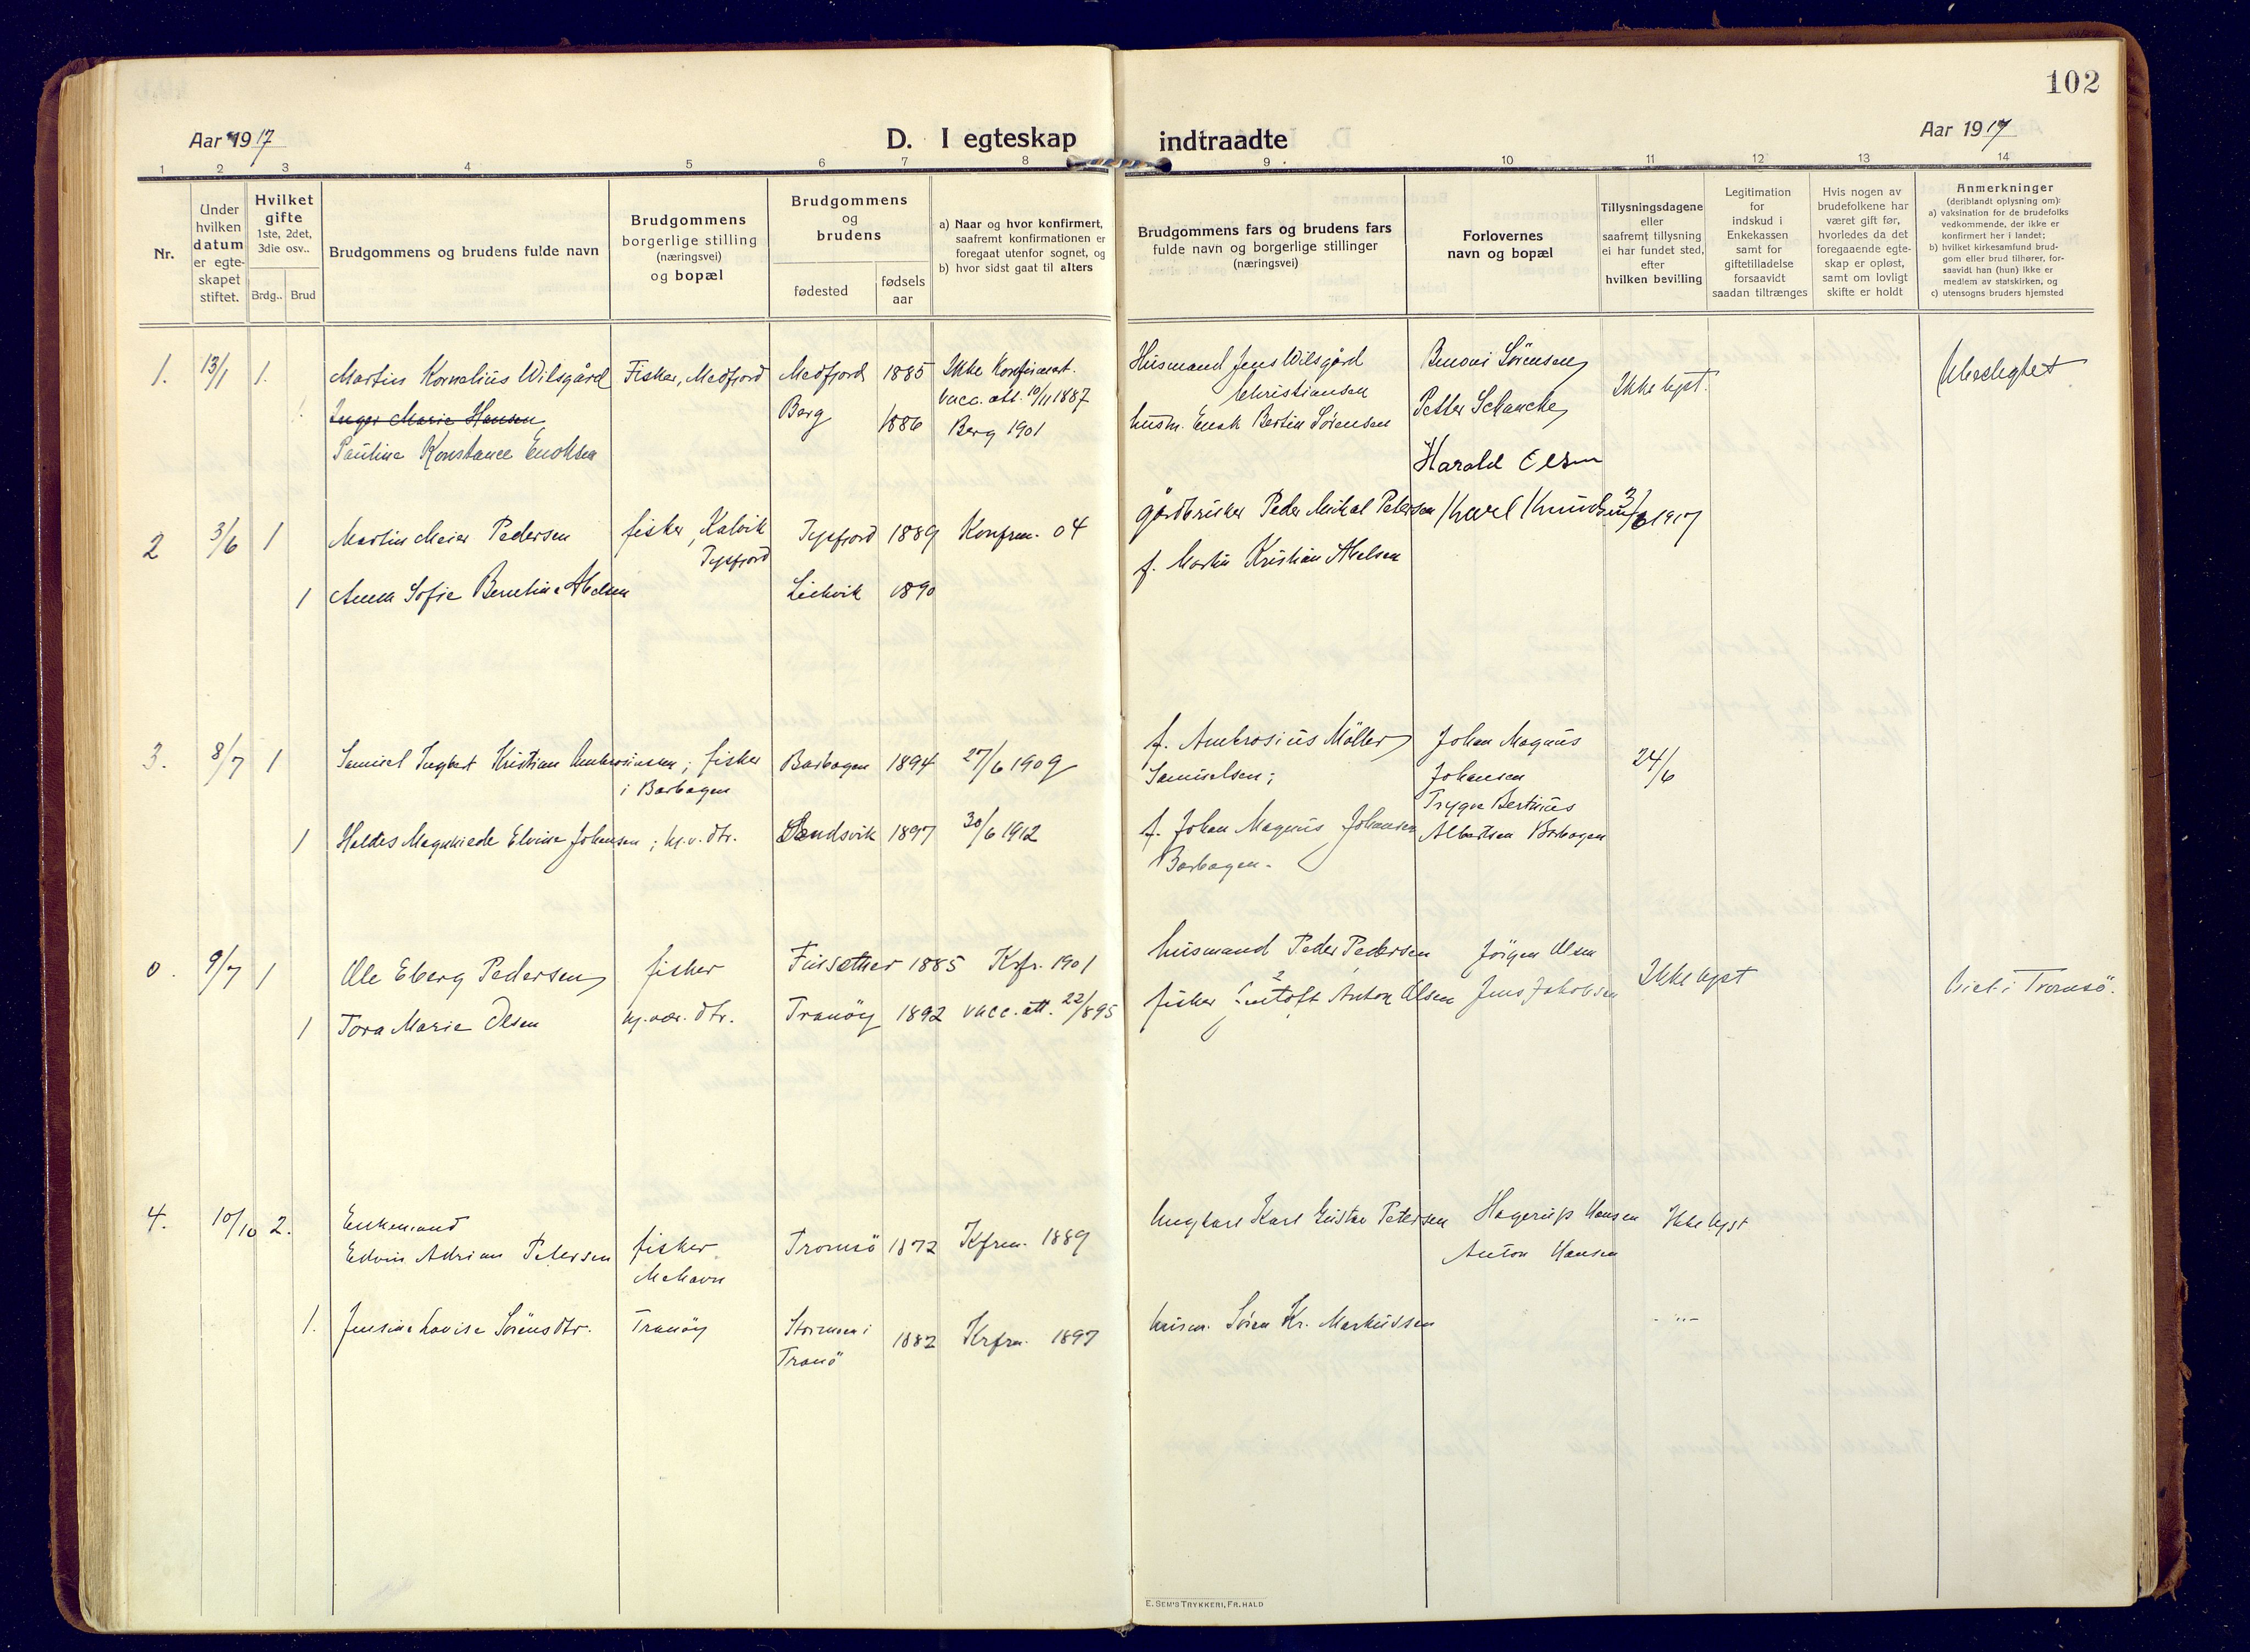 102
Aar 1917
D. I egteskap
indtraadte
Aar 1917
1 2 3 4 5 6 7 8 9 10 11 12 13 14
Nr.
Under
hvilken
datum
er egte-
skapet
stiftet.
Hvilket
gifte
1ste, 2det,
3die osv..
Brdg.. Brud
Brudgommens og brudens fulde navn
Brudgommens
borgerlige stilling
(næringsvei)
og bopæl
Brudgommens
og
brudens
fødested
fødsels
aar
a) Naar og hvor konfirmert,
saafremt konfirmationen er
foregaat utenfor sognet, og
b) hvor sidst gaat til alters
Brudgommens fars og brudens fars
fulde navn og borgerlige stillinger
(næringsvei)
Forlovernes
navn og bopæl
Tillysningsdagene
eller
saafremt tillysning
ei har fundet sted,
efter
hvilken bevilling
Legitimation
for
indskud i
Enkekassen
samt for
giftetilladelse
forsaavidt
saadan tiltrænges
Hvis nogen av
brudefolkene har
været gift før,
hvorledes da det
foregaaende egte-
skap er opløst,
samt om lovligt
skifte er holdt
Anmerkninger
(deriblandt oplysning om):
a) vaksination for de brudefolks
vedkommende, der ikke er
konfirmert her i landet;
b) hvilket kirkesamfund brud-
gom eller brud tilhører, for-
saavidt han (hun) ikke er
medlem av statskirken, og
c) utensogns bruders hjemsted
1. 13/1 1. Martin Kornelius Wilsgård Fisker, Medfjord Medfjord 1885 Ikke Konfirmert.
vacc. att. 10/11 1887
1. Inger Marie Hansen Berg 1886 Berg 1901
Pauline Konstance Enoksen
Husmand Jens Wilsgård
Christiansen
husm. Enok Bertin Sørensen
Benoni Sörensen
Petter Schanche
Ikke lyst.
Harald Olsen
2 3/6 1 Martin Meier Pedersen fisker, Kalvik
Tysfjord
Tysfjord 1889 Konfrm. 04
1 Anna Sofie Berntine Abelsen Leikvik 1890
gårdbruker Peder Mikal Petersen
f. Martin Kristian Abelsen
Karl Knudsen
3/6 1917
3. 8/7 1 Samuel Ingbert Kristian Ambrosiussen; fisker
i Barbogen
Barbogen 1894 27/6 1909
1 Haldis Magnhiede Elvine Johansen; hj.v. dtr. Sandsvik 1897 30/6 1912
f. Ambrosius Möller
Samuelsen;
f. Johan Magnus Johansen
Barbogen.
Johan Magnus
Johansen
Trygve Bertinus
Albertsen Barbogen
24/6
0. 9/7 1 Ole Eberg Pedersen fisker Finsæther 1885 Krfr. 1901
1 Tora Marie Olsen hj.vær. dtr. Tranöy 1892 vacc. att. 22/8 95
husmand Peder Pedersen
fisker Anton Olsen
Jörgen Olsen
Jens Jakobsen
Ikke lyst
Viet i Tromsö.
4. 10/10 2. Enkemand
Edvin Adrian Petersen fisker
Mehavn
Tromsö 1872 Kfrm. 1889
1. Jensine Lovise Sörensdtr. Tranöy 1882 Krfrm. 1897
Tranö
Ungkarl Karl Gustav Petersen
husm. Sören Kr. Markussen
Hagerup Hansen
Anton Hansen
Ikke lyst
- " -
E. SEM'S TRYKKERI, FR.HALD